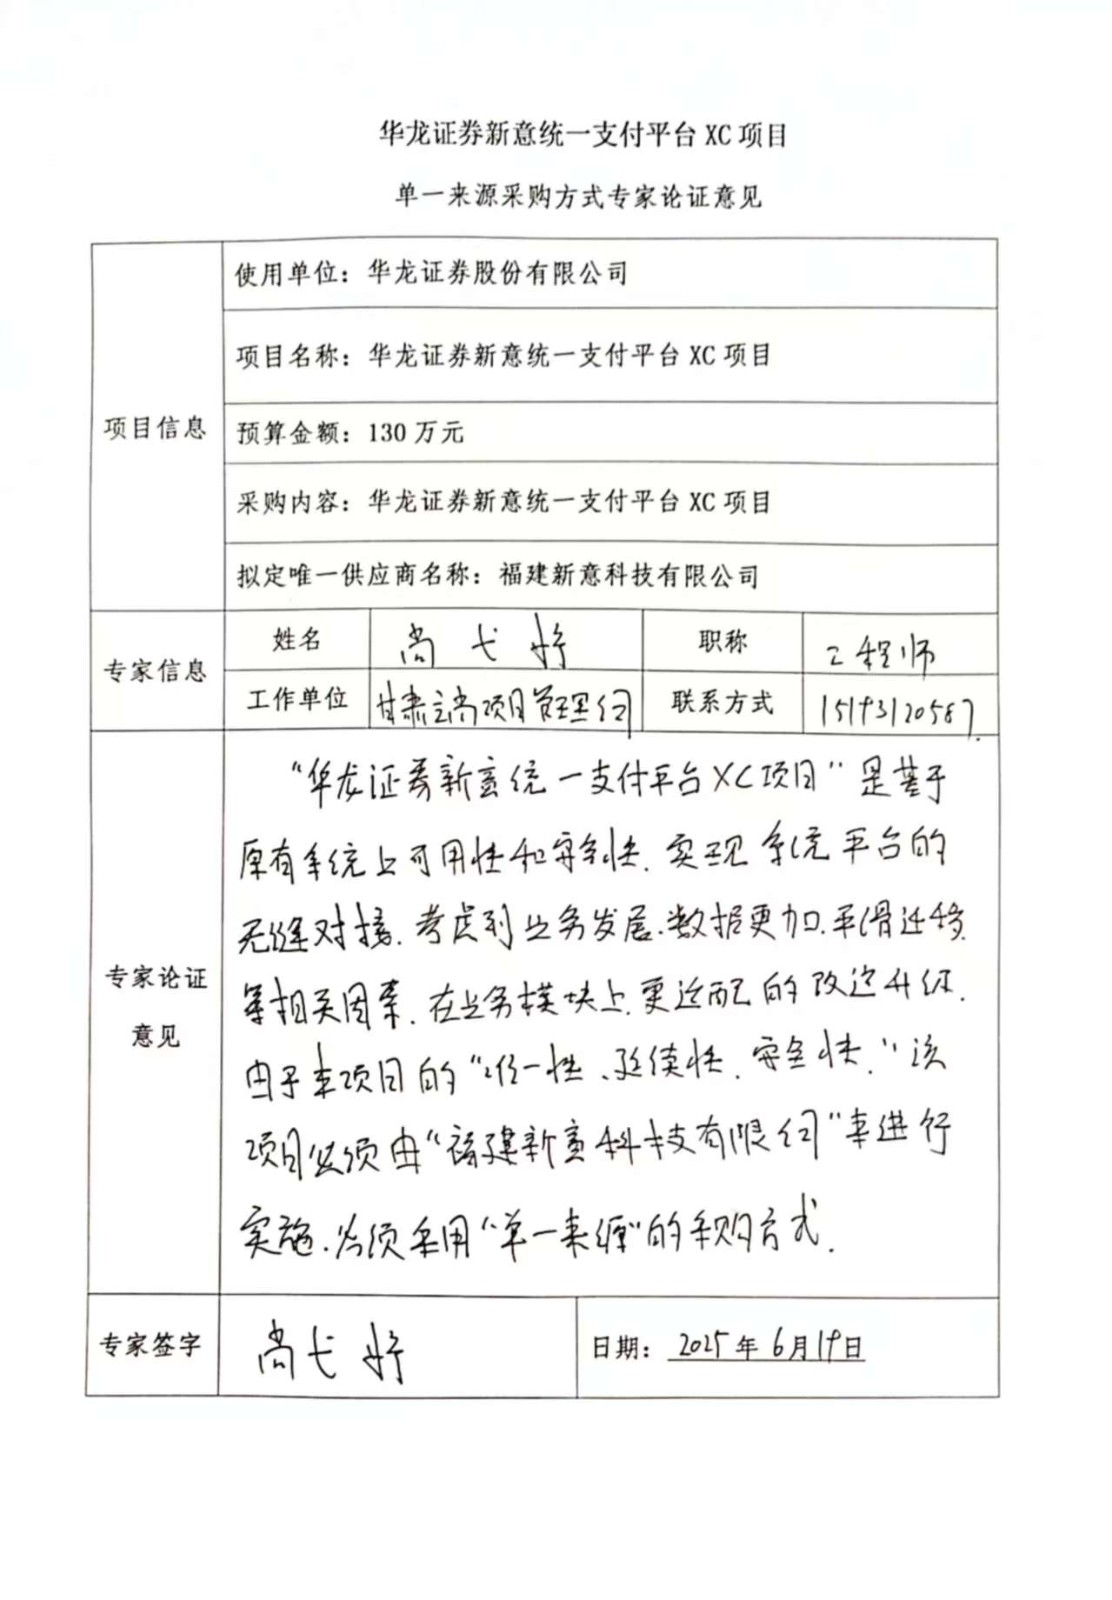 华龙证券新意统一支付平台 XC 项目
单一来源采购方式专家论证意见
项目信息
使用单位：华龙证券股份有限公司
项目名称：华龙证券新意统一支付平台 XC 项目
预算金额：130 万元
采购内容：华龙证券新意统一支付平台 XC 项目
拟定唯一供应商名称：福建新意科技有限公司
专家信息
姓名 尚弋婷 职称 工程师
工作单位 甘肃 项目管理公司 联系方式 15193120587
专家论证
意见
“华龙证券新意统一支付平台XC项目”是基于
原有系统上可用性和安全性、实现系统平台的
无缝对接、考虑到业务发展、数据更加、平滑迁移
等相关因素、在业务模块上更适配的改造升级.
由于本项目的“唯一性、延续性、安全性.”该
项目必须由“福建新意科技有限公司”来进行
实施、必须采用“单一来源”的采购方式.
专家签字 尚弋婷 日期：2025年6月19日